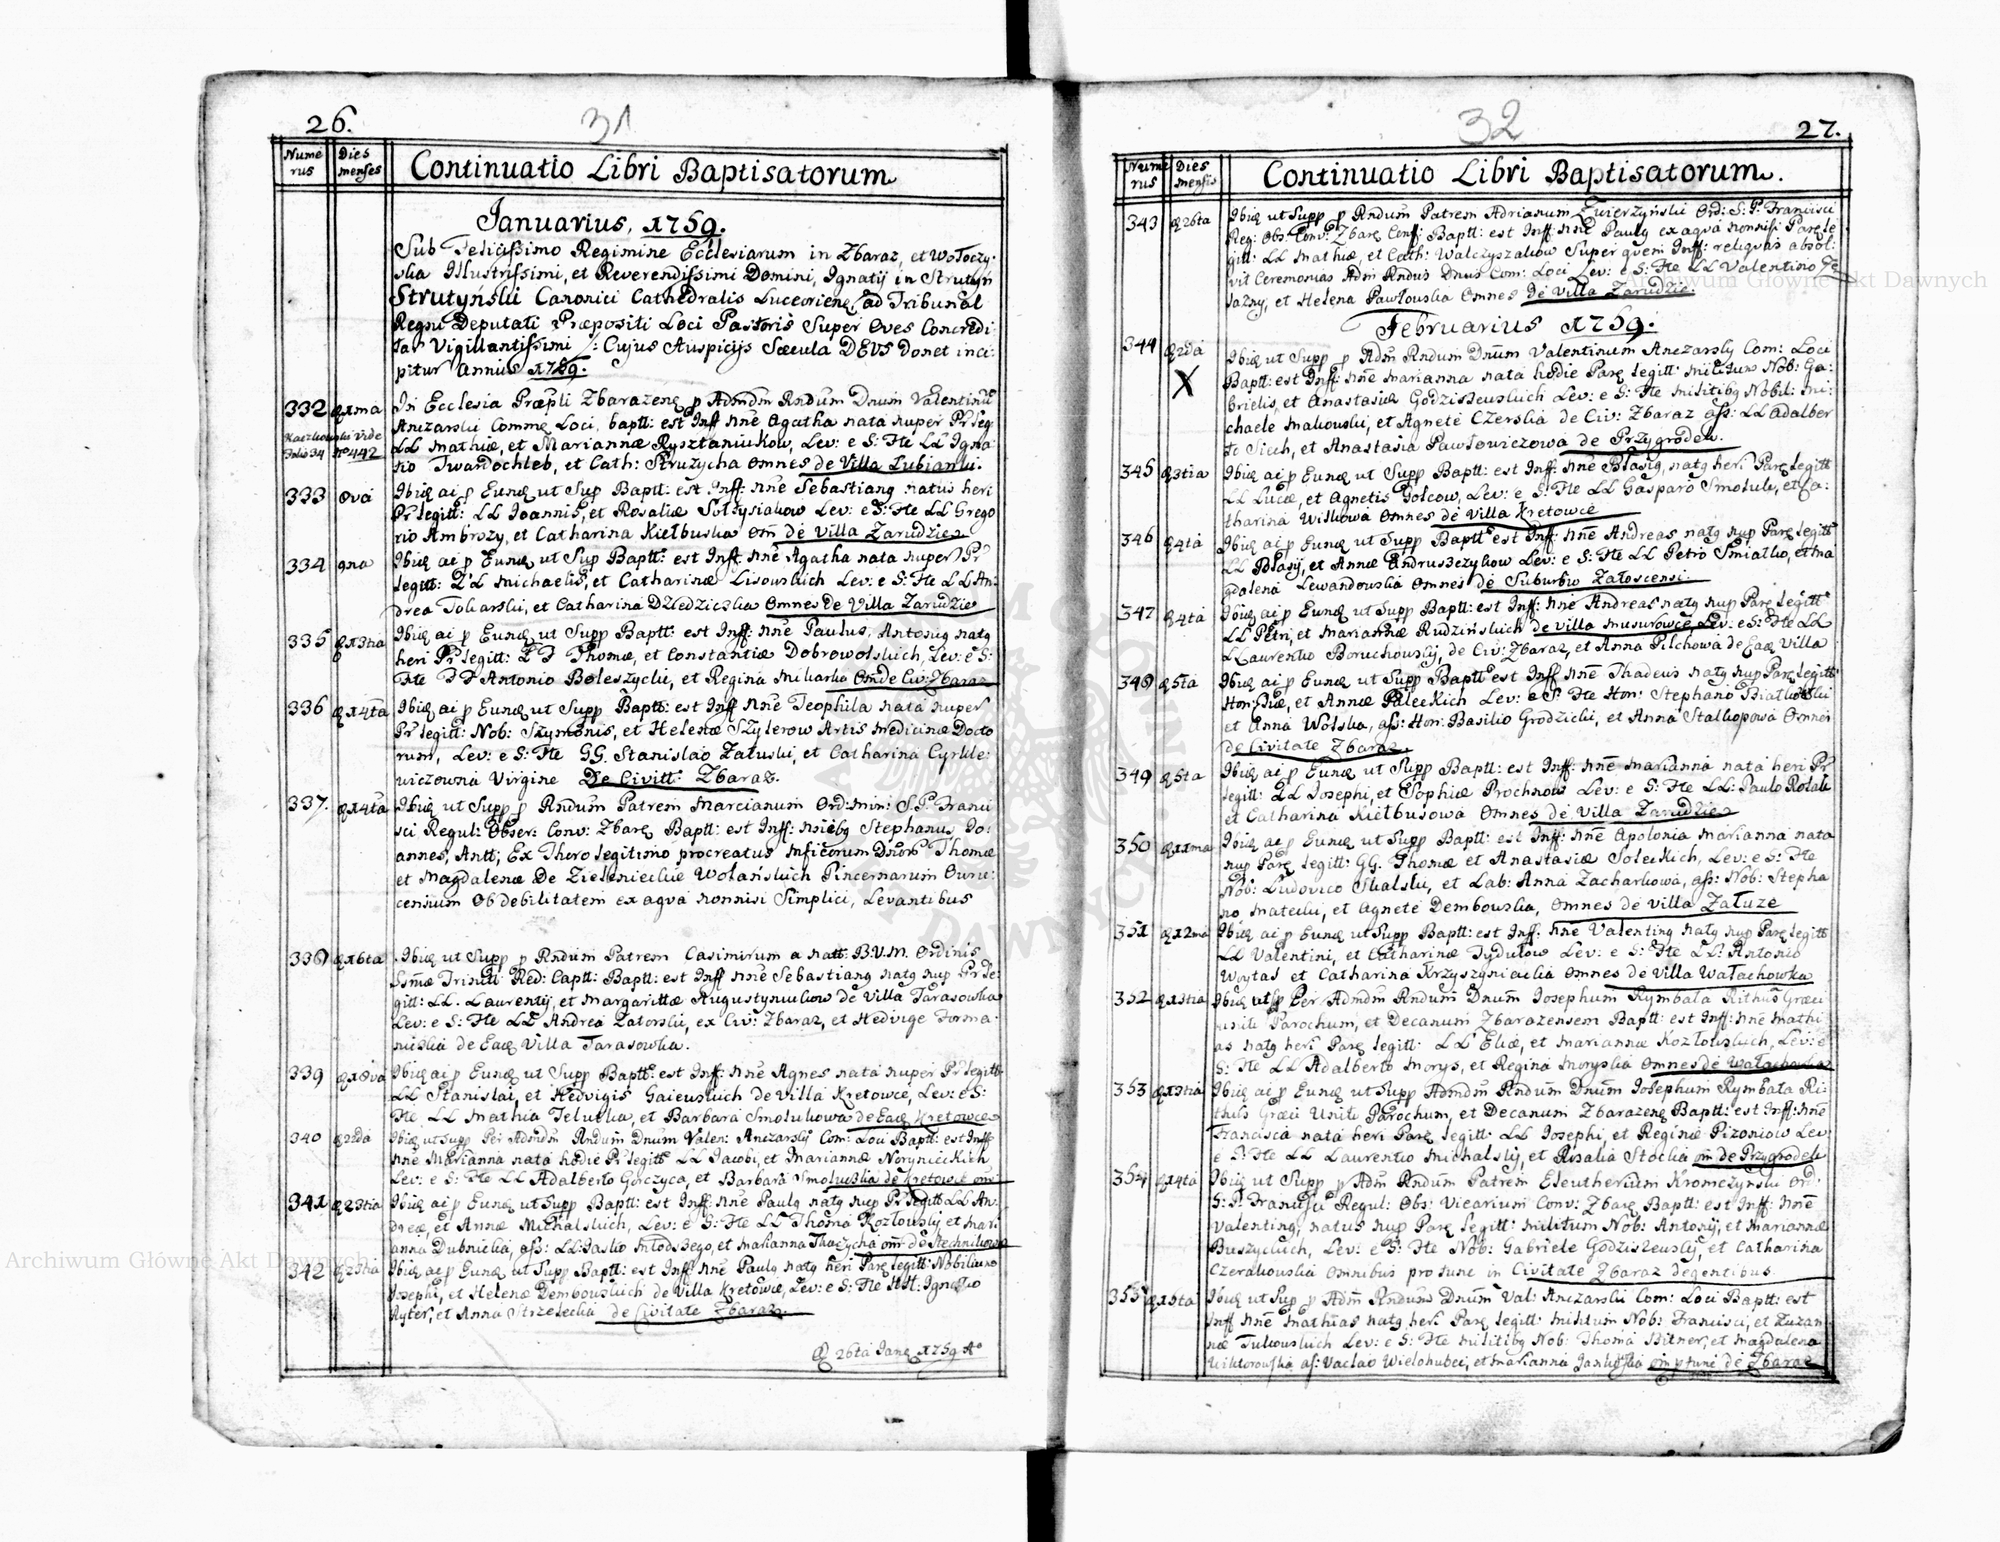 26.
31
Nume
rus
Dies
menses
Continuatio Libri Baptisatorum
Januarius, 1759.
Sub Felicissimo Regimine Ecclesiarum in Zbaraz, et Wołoczy:
ska Illustrissimi, et Reverendissimi Domini, Ignatij in Strutyń
Strutyński Canonici Cathedralis Luceorienę, ad Tribunal
Regni Deputati Præpositi Loci Pastoris Super Oves Concredi:
tas Vigillantissimi /: Cujus Auspicijs Sæcula DEUS donet inci:
pitur Annus 1759.
332 1ma In Ecclesia Præpli Zbarazenę p Admdm Rndum Dnum Valentinū
Anczarski Commę Loci, baptt: est Inff nnē Agatha nata nuper Pr leg:
Kaczkowski Vide
Folio 34 No 442
LL Mathiæ, et Mariannæ Rysztaniukow, Lev: e S: Fte LL Igna:
tio Twardochleb, et Cath: Struzycha Omnes de Villa Lubianki.
333 8va Ibię ai p Eunę ut Sup Baptt: est Inff: nnē Sebastianꝯ natus heri
Pr legitt: LL Joannis, et Rosaliæ Sołtysiakow Lev: e S: Fte LL Grego
rio Ambrozy, et Catharina Kiełbuska Om de Villa Zarudzie
334 9na Ibię ai p Eunę ut Sup Baptt: est Inff nnē Agatha nata nuper Pr
legitt: LL Michaelis, et Catharinæ Lisowskich Lev: e S: Fte LL An:
drea Tokarski, et Catharina Dziedzicka Omnes de Villa Zarudzie
335 13tia Ibię ai p Eunę ut Supp Baptt: est Inff: nnē Paulus, Antoniꝯ natꝯ
heri Pr legitt: Thomæ, et Constantiæ Dobrowolskich, Lev: e S:
Fte Antonio Boleszycki, et Regina Miliarka Om de Civ: Zbaraz
336 14ta Ibię ai p Eunę ut Supp Baptt: est Inff nnē Teophila nata nuper
Pr legitt: Nob: Szymonis, et Helenæ Szylerow Artis Medicinæ Docto
rum, Lev: e S: Fte GG. Stanislao Załuski, et Catharina Cyrkle:
wiczowna Virgine De Civitt: Zbaraz.
337. 14ta Ibię ut Supp p Rndum Patrem Marcianum Ord: Min: S. P. Franci
sci Regul: Obser: Conv: Zbarę Baptt: est Inff: Stephanus Jo:
annes, Antt; Ex Thoro legitimo procreatus Thomæ
et Magdalenæ De Zielenieckie Wolańskich Pincernarum Owru:
censium Ob debilitatem ex aqva nonnisi Simplici, Levantibus
338 16ta Ibię ut Supp p Rndum Patrem Casimirum a natt: B.V.M. Ordinis
Ssmæ Trinitt: Red: Captt: Baptt: est Inff nnē Sebastianꝯ natꝯ nup Pr le:
gitt: LL. Laurentij, et Margarittæ Augustyniukow de Villa Tarasowka
Lev: e S: Fte LL Andrea Zatorski, ex Civ: Zbaraz, et Hedvige Forma:
nicka de Eaę Villa Tarasowka.
339 18va Ibię ai p Eunę ut Supp Baptt: est Inff: nnē Agnes nata nuper Pr legitt:
LL Stanislai, et Hedvigis Gaiewskich de Villa Kretowce, Lev: e S:
Fte LL Mathia Teluzka, et Barbara Smolukowa de Eaę Kretowce
340 22da Ibię ut Supp Per Admdm Rndum Dnum Valen: Anczarskj Com: Loci Baptt: est Inff:
nnē Marianna nata hodie Pr legitt: LL Jacobi, et Mariannæ Noryniеckich
Lev: e S: Fte LL Adalberto Gorczyca, et Barbara Smoluczka de Kretowce om:
341 23tia Ibię ai p Eunę ut Supp Baptt: est Inff: nnē Paulꝯ natꝯ nup Pr legitt LL An:
dreæ, et Annæ Michalskich, Lev: e S: Fte LL Thoma Kozłowskj et Mari
anna Dubnicka, ass: LL Jasko Młodszego, et Marianna Tkaczycha om de Stechnikowce
342 25tia Ibię ai p Eunę ut Supp Baptt: est Inff nnē Paulꝯ natꝯ heri Parę legitt: Nobilium
Josephi, et Helenæ Dembowskich de Villa Kretowce, Lev: e S: Fte HH: Ignatio
Ryter, et Anna Strzelecka de Civitate Zbaraz.
26ta Janę 1759 Ao
32
27.
Nume
rus
Dies
mensis
Continuatio Libri Baptisatorum.
343 26ta Ibię ut Supp p Rndum Patrem Adrianum Zwierzyński Ord: S. P. Francisci
Reg: Obs: Conv: Zbarę Conff: Baptt: est Inff: nnē Paulꝯ ex aqva nonnisi Parę le
gitt: LL Mathiæ, et Cath: Walczyszakow Super quem Inff: reliqvas absol:
vit Ceremonias Adm Rndus Dnus Com: Loci Lev: e S: Fte LL Valentino
Jazny, et Helena Pawłowska Omnes de Villa Zarudzie.
Februarius 1759.
344 2da Ibię ut Supp p Adm Rndum Dnum Valentinum Anczarskj Com: Loci
X
Baptt: est Inff: nnē Marianna nata hodie Parę legitt: Militum Nob: Ga:
brielis, et Anastasiæ Godziszewskich Lev: e S: Fte Militibꝯ Nobil: Mi:
chaele Makowski, et Agnete Czerska de Civ: Zbaraz ass: LL Adalber
to Siech, et Anastasia Pawłowiczowa de Przygrodek.
345 3tia Ibię ai p Eunę ut Supp Baptt: est Inff: nnē Błasiꝯ, natꝯ heri Parę legitt
LL Lucæ, et Agnetis Golcow, Lev: e S: Fte LL Gasparo Smoluk, et Ca:
tharina Wilkowa Omnes de Villa Kretowce
346 4ta Ibię ai p Eunę ut Supp Baptt: est Inff: nnē Andreas natꝯ nup Parę legitt
LL Błasij, et Annæ Andruszczykow Lev: e S: Fte LL Petro Smiałko, et Ma
gdalena Lewandowska Omnes de Suburbio Załoscensi
347 4ta Ibię ai p Eunę ut Supp Baptt: est Inff: nnē Andreas natꝯ nup Parę legitt
LL Petri, et Mariannæ Rudzińskich de Villa Musurowce Lev: e S: Fte LL
Laurentio Boruchowskj, de Civ: Zbaraz, et Anna Pilchowa de Eaę Villa
348 5ta Ibię ai p Eunę ut Supp Baptt: est Inff nnē Thadeus natꝯ nup Parę legitt
Hon: et Annæ Paleckich Lev: e S: Fte Hon: Stephano Białkowski
et Anna Wolska, ass: Hon: Basilio Grodzicki, et Anna Stalkopowa Omnes
de Civitate Zbaraz.
349 5ta Ibię ai p Eunę ut Supp Baptt: est Inff: nnē Marianna nata heri Pr
legitt: LL Josephi, et Sophiæ Prochnow Lev: e S: Fte LL: Paulo Rotale
et Catharina Kiełbusowa Omnes de Villa Zarudzie
350 11ma Ibię ai p Eunę ut Supp Baptt: est Inff: nnē Apolonia Marianna nata
nup Parę legitt: GG. Thomæ et Anastasiæ Soleckich, Lev: e S: Fte
Nob: Ludovico Skalski, et Lab: Anna Zacharkowa, ass: Nob: Stepha
no Matecki, et Agnete Dembowska, Omnes de Villa Załuze
351 12ma Ibię ai p Eunę ut Supp Baptt: est Inff: nnē Valentinꝯ natꝯ nup Parę legitt
LL Valentini, et Catharinæ Dydułow Lev: e S: Fte LL: Antonio
Woytas et Catharina Krzyszyniacka Omnes de Villa Wałachowka
352 13tia Ibię ut Sup Per Admdm Rndum Dnum Josephum Rymbała Rithus Græci
Uniti Parochum, et Decanum Zbarazensem Baptt: est Inff: nnē Mathi:
as natꝯ heri Parę legitt: LL Eliæ, et Mariannæ Kozłowskich, Lev: e
S: Fte LL Adalberto Morys, et Regina Moryska Omnes de Wałachowka
353 13tia Ibię ai p Eunę ut Supp Admdm Rndum Dnum Josephum Rymbała Ri:
thus Græci Uniti Parochum, et Decanum Zbarazenę Baptt: est Inff: nnē
Francisca nata heri Parę legitt: LL Josephi, et Reginæ Pizoniow Lev:
e S: Fte LL Laurentio Michalskj, et Rosalia Stocka om de Przygrodek
354 14ta Ibię ut Supp p Adm Rndum Patrem Eleutherium Kromczynski Ord:
S: P: Francisci Regul: Obs: Vicarium Conv: Zbarę Baptt: est Inff: nnē
Valentinꝯ, natus nup Parę legitt: Militum Nob: Antonij, et Mariannæ
Buszyckich, Lev: e S: Fte Nob: Gabriele Godziszewskj, et Catharina
Czerakowska Omnibus pro tunc in Civitate Zbaraz degentibus.
355 15ta Ibię ut Sup p Adm Rndum Dnum Val: Anczarski Com: Loci Baptt: est
Inff nnē Mathias natꝯ heri Parę legitt: Militum Nob: Francisci, et Zuzan
næ Tulkowskich Lev: e S: Fte Militibꝯ Nob: Thoma Bitner, et Magdalena
Wiktorowska ass: Vaclao Wielohubci, et Marianna om p tunc de Zbaraz
Archiwum Główne Akt Dawnych
Archiwum Główne Akt Dawnych
ARCHIWUM GŁÓWNE AKT DAWNYCH